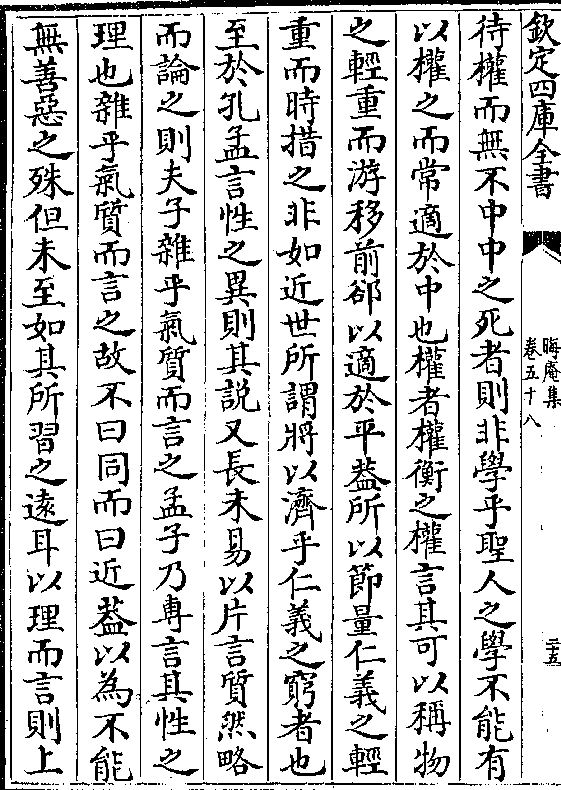 欽定四庫全書
晦庵集
卷五十八
二十五
待權而無不中中之死者則非學乎聖人之學不能有
以權之而常適於中也權者權衡之權言其可以稱物
之輕重而游移前郤以適於平葢所以節量仁義之輕
重而時措之非如近世所謂將以濟乎仁義之窮者也
至於孔孟言性之異則其說又長未易以片言質然略
而論之則夫子雜乎氣質而言之孟子乃專言其性之
理也雜乎氣質而言之故不曰同而曰近葢以為不能
無善惡之殊但未至如其所習之遠耳以理而言則上